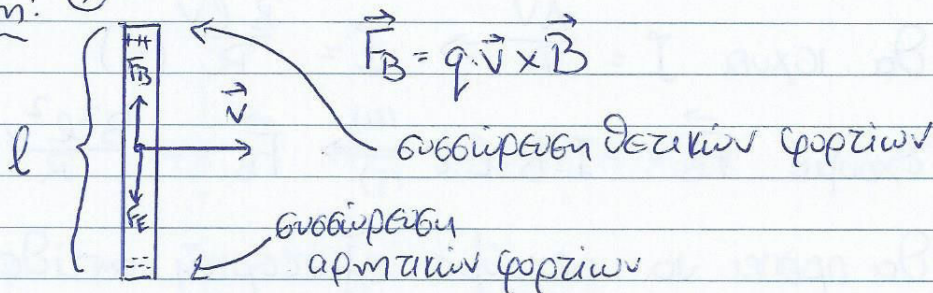 ++
F⃗_B = q·v⃗×B⃗
F_B
v⃗
l
συσσώρευση θετικών φορτίων
F_E
συσσώρευση
αρνητικών φορτίων
---